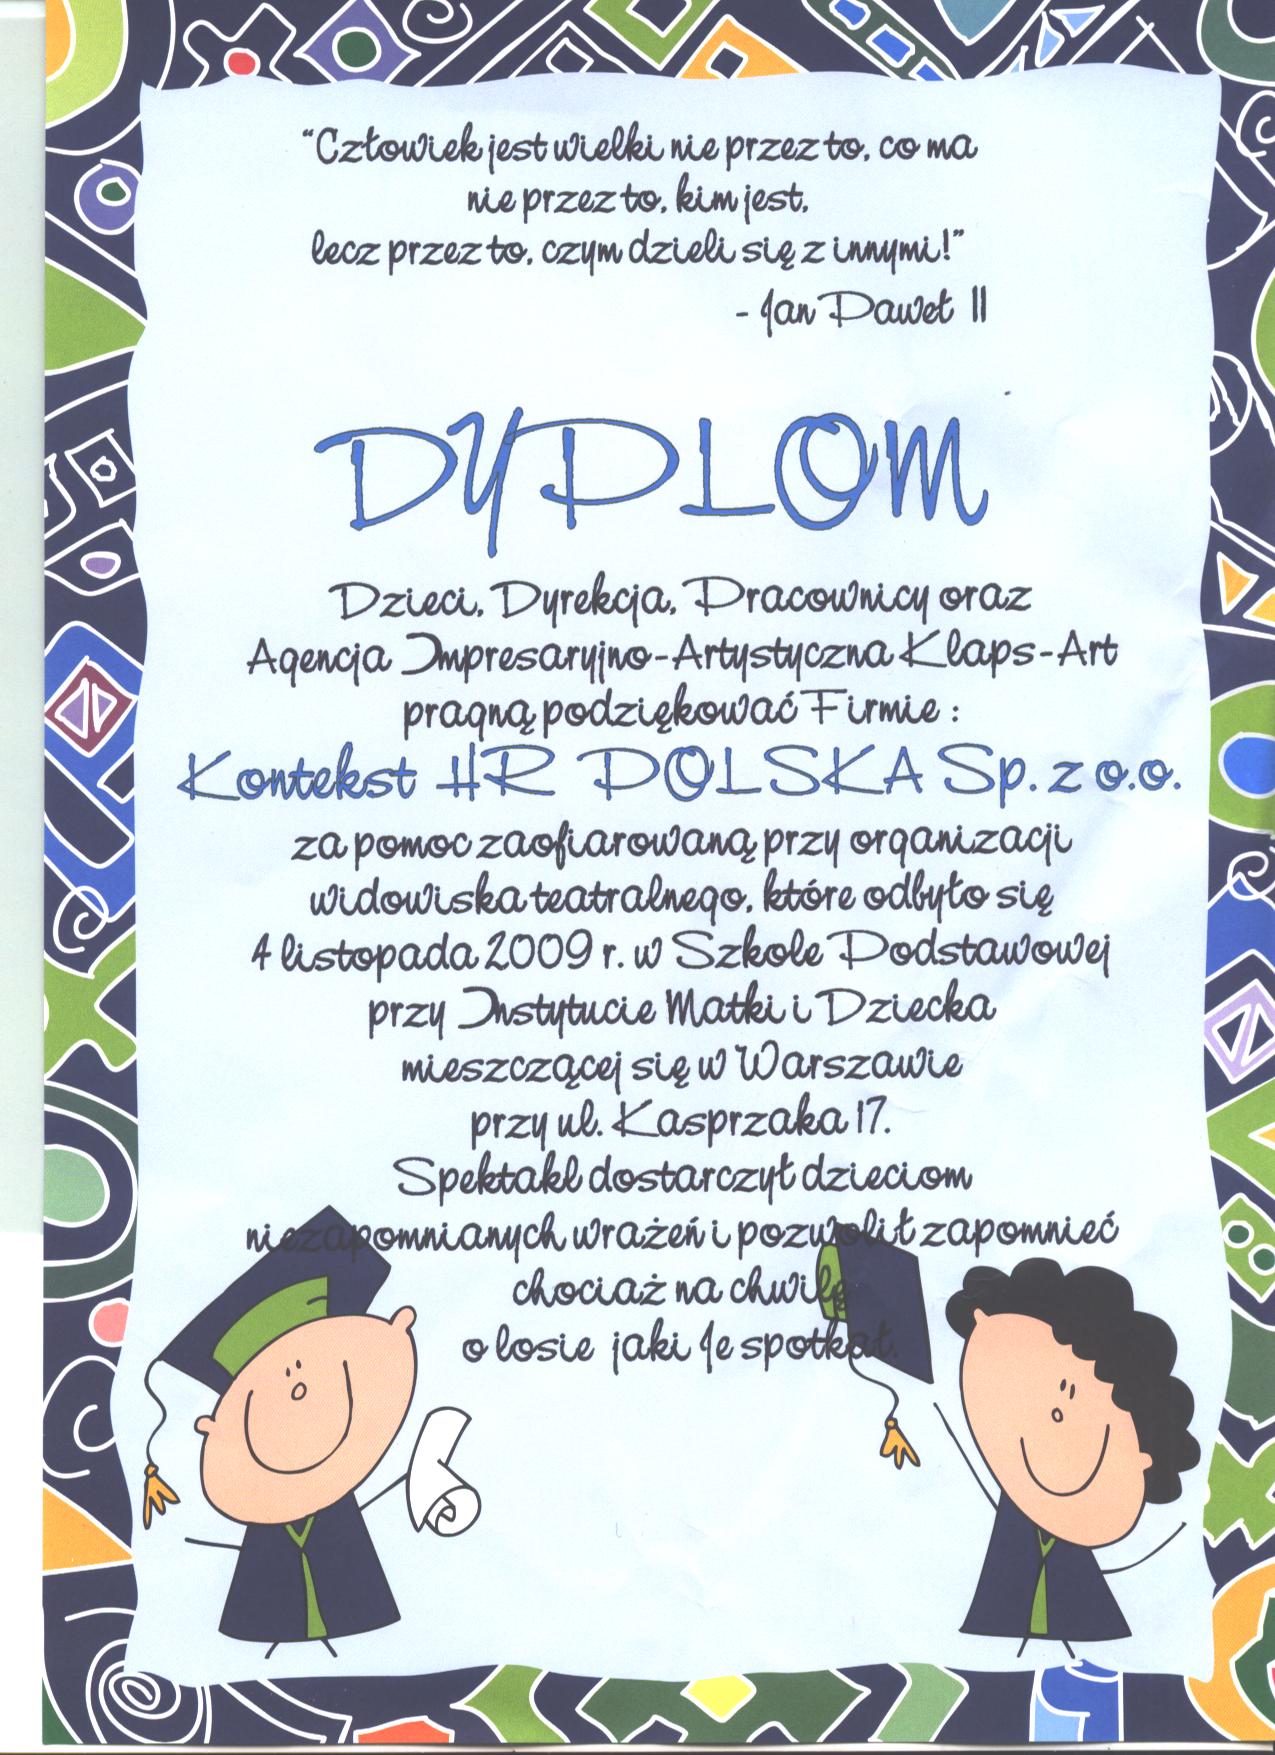 “Człowiek jest wielki nie przez to, co ma
nie przez to, kim jest,
lecz przez to, czym dzieli się z innymi!”
- Jan Paweł II
DYPLOM
Dzieci, Dyrekcja, Pracownicy oraz
Agencja Impresaryjno-Artystyczna Klaps-Art
pragną podziękować Firmie :
Kontekst HR POLSKA Sp. z o.o.
za pomoc zaofiarowaną przy organizacji
widowiska teatralnego, które odbyło się
4 listopada 2009 r. w Szkole Podstawowej
przy Instytucie Matki i Dziecka
mieszczącej się w Warszawie
przy ul. Kasprzaka 17.
Spektakl dostarczył dzieciom
niezapomnianych wrażeń i pozwolił zapomnieć
chociaż na chwilę
o losie jaki Je spotkał.